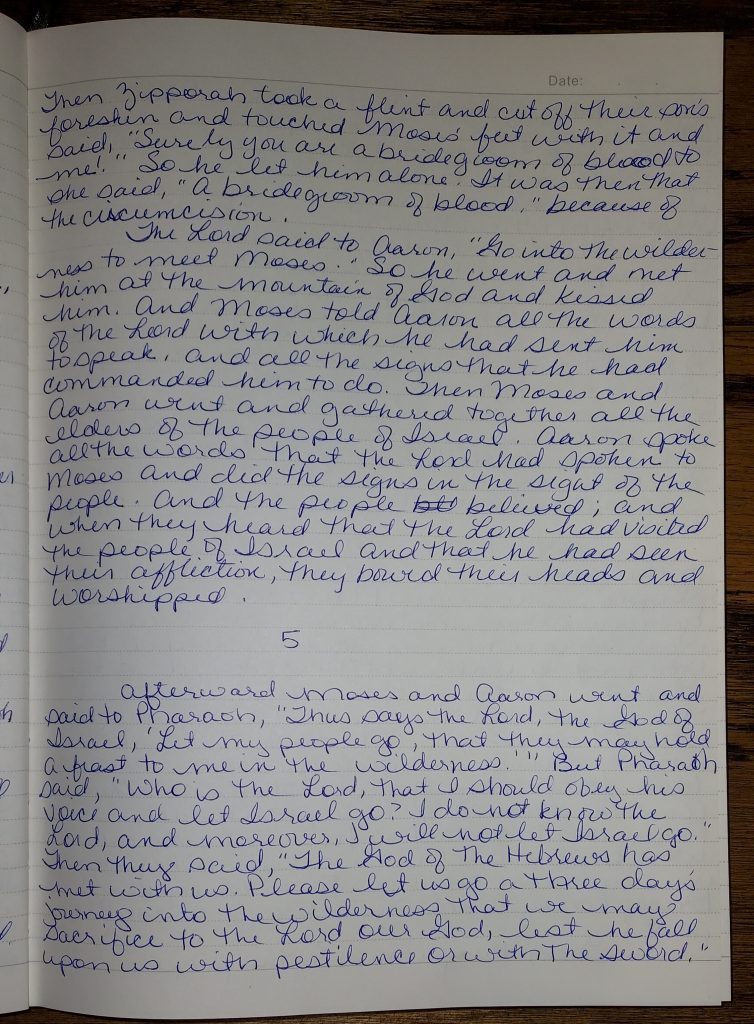 Date:
Then Zipporah took a flint and cut off their son's
foreskin and touched Moses' feet with it and
said, "Surely you are a bridegroom of blood to
me!" So he let him alone. It was then that
she said, "A bridegroom of blood," because of
the circumcision.
The Lord said to Aaron, "Go into the wilder-
ness to meet Moses." So he went and met
him at the mountain of God and kissed
him. And Moses told Aaron all the words
of the Lord with which he had sent him
to speak, and all the signs that he had
commanded him to do. Then Moses and
Aaron went and gathered together all the
elders of the people of Israel. Aaron spoke
all the words that the Lord had spoken to
Moses and did the signs in the sight of the
people. And the people believed; and
when they heard that the Lord had visited
the people of Israel and that he had seen
their affliction, they bowed their heads and
worshipped.
5
Afterward Moses and Aaron went and
said to Pharaoh, "Thus says the Lord, the God of
Israel, 'Let my people go, that they may hold
a feast to me in the wilderness.'" But Pharaoh
said, "Who is the Lord, that I should obey his
voice and let Israel go? I do not know the
Lord, and moreover, I will not let Israel go."
Then they said, "The God of the Hebrews has
met with us. Please let us go a three days'
journey into the wilderness that we may
sacrifice to the Lord our God, lest he fall
upon us with pestilence or with the sword."